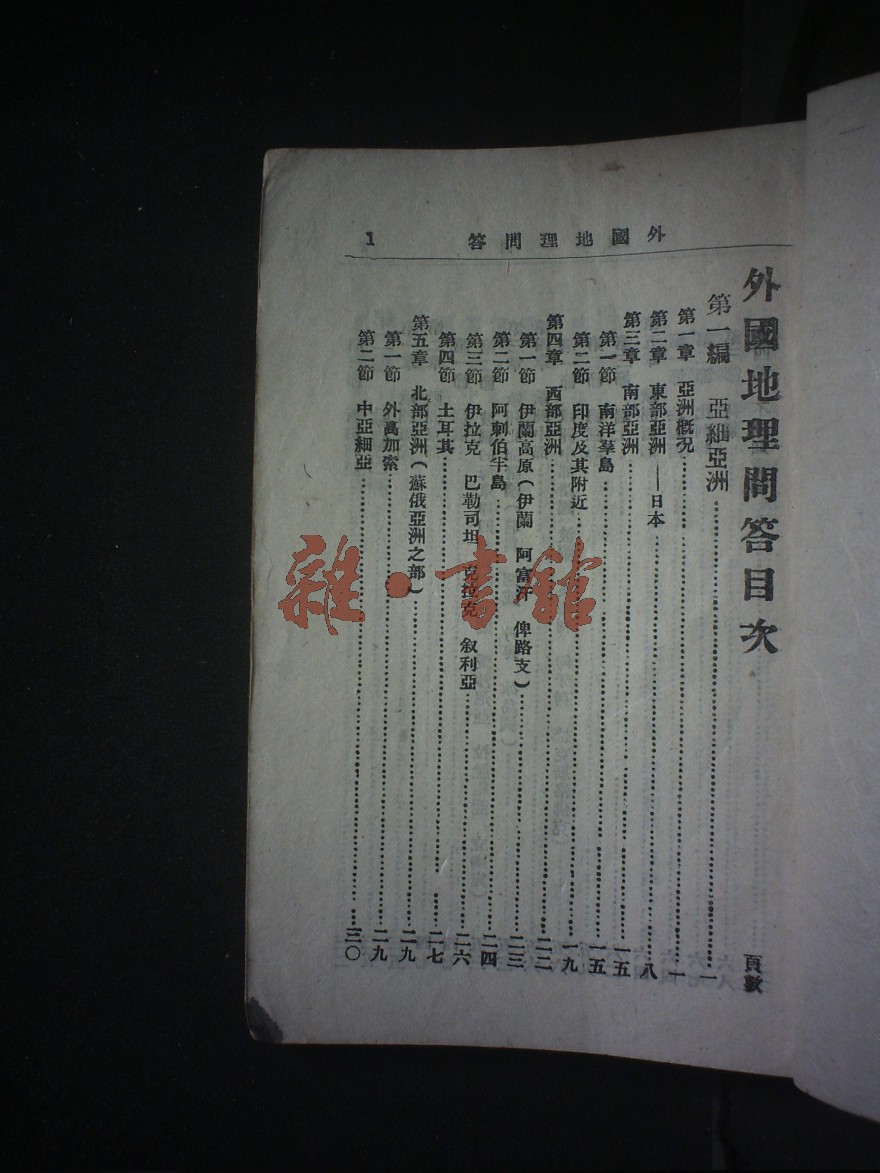 外國地理問答 1
外國地理問答目次 頁數
第一編 亞細亞洲……一
第一章 亞洲概況……一
第二章 東部亞洲——日本……八
第三章 南部亞洲……一五
第一節 南洋羣島……一五
第二節 印度及其附近……一九
第四章 西部亞洲……二二
第一節 伊蘭高原(伊蘭 阿富汗 俾路支)……二三
第二節 阿剌伯半島……二四
第三節 伊拉克 巴勒司坦 克拉克 敘利亞……二六
第四節 土耳其……二七
第五章 北部亞洲(蘇俄亞洲之部)……二九
第一節 外高加索……二九
第二節 中亞細亞……三〇
雜·書館